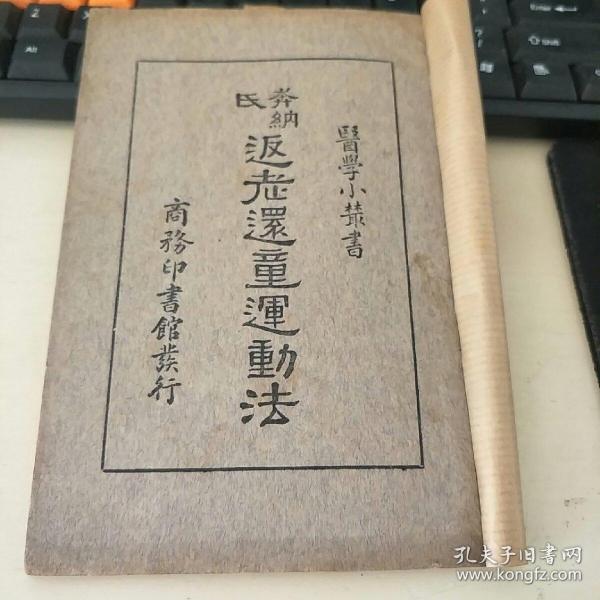 醫學小叢書
奔納氏
返老還童運動法
商務印書館發行
孔夫子旧书网
www.kongfz.com